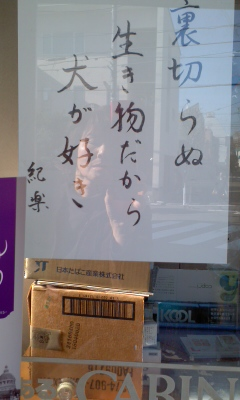 裏切らぬ
生き物だから
犬が好き
紀楽
日本たばこ産業株式会社
KOOL
CABIN